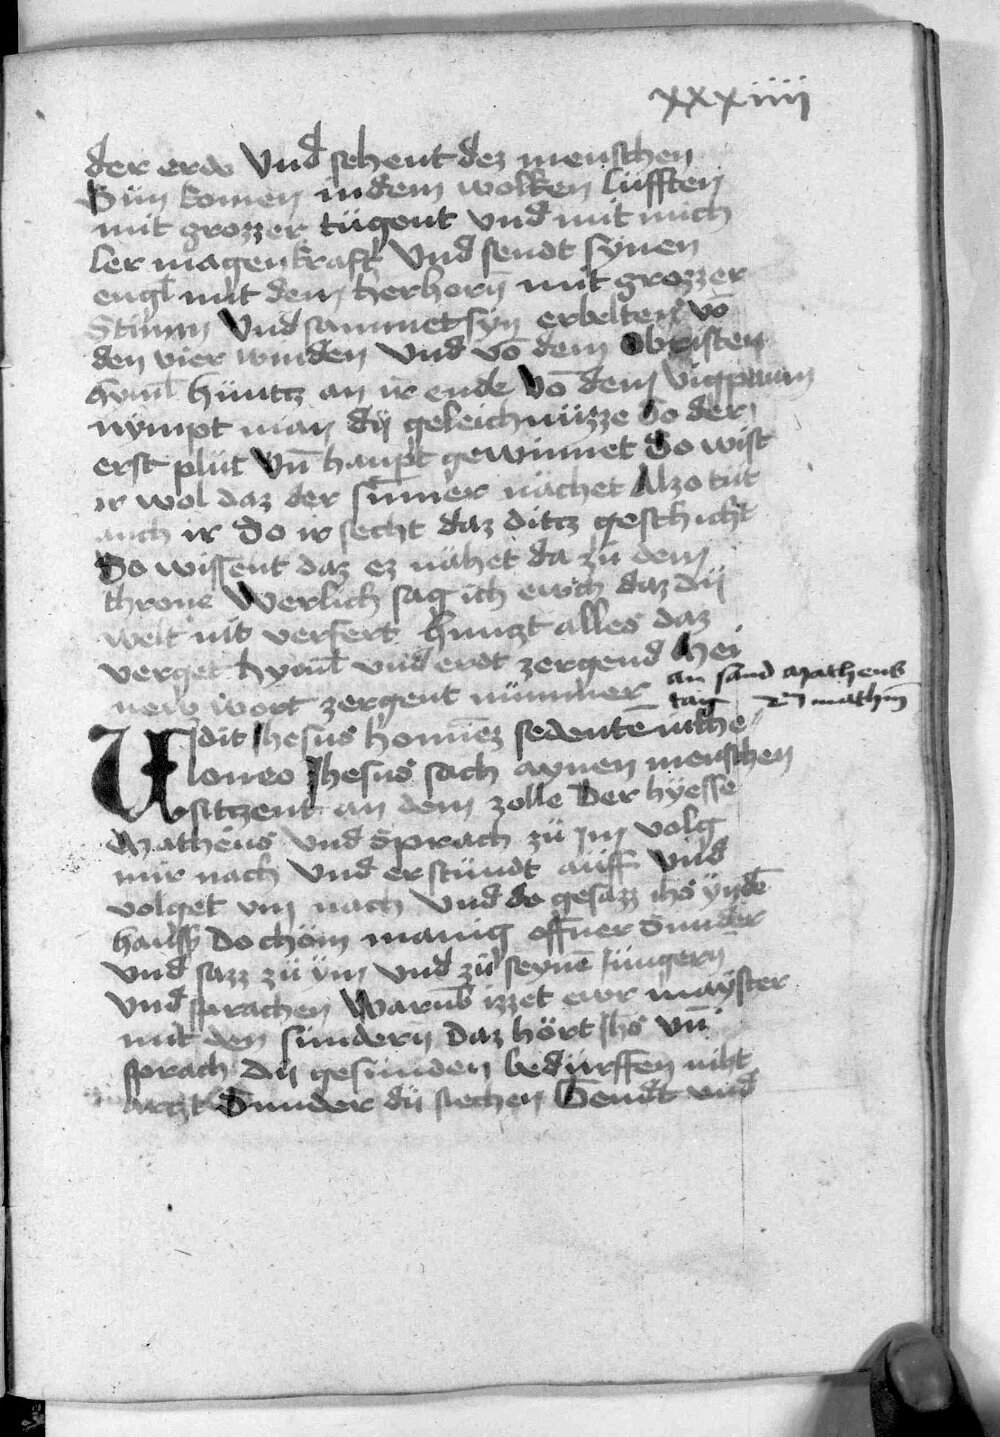 xxxiiij
der erde Vnd sehent dez menschen
Sün komen in dem wolken lüfften
mit grozzer tügent vnd mit mich
ler magenkraft Vnd sendt synen
engl mit dem herhorn mit grozzer
Stimm Vnd sammet syn erbelten vō
den vier winden Vnd vō dem obristen
hyml hüntz an ir ende Vō dem vigpaum
nympt man dÿ geleichnüzze So der
erst plüt Vn̄ haupt gewinnet So wist
ir wol daz der summer nächet Alzo tüt
auch ir So ir secht daz ditz geschicht
So wissent daz ez nähet da zü dem
throne Werlich sag ich ewch daz dÿ
welt nit verfert huntzt alles daz
verget hyml vnd erdt zergend Mei
new wort zergent nümmer an sand Matheus
tag Eū mathm̄
Vidit Jhesus hominez sedentē in the
loneo Jhesus sach aynen menschen
sitzent an dem zolle Der hyesse
Matheus Vnd Sprach zü Jm volg
mir nach Vnd er stündt auff Vnd
volget ym nach Vnd do gesazz ihs ynde
hauss Do chöm manig offner Sunder
Vnd sazz zü ym Vnd zü seynē Jüngern
Vnd sprachen Warūb izzet ewr mayster
mit den sündern Daz hört ihs vn̄
sprach Dÿ gesunden bedürffen niht
arczt Sunder dÿ siechen Gendt vnd